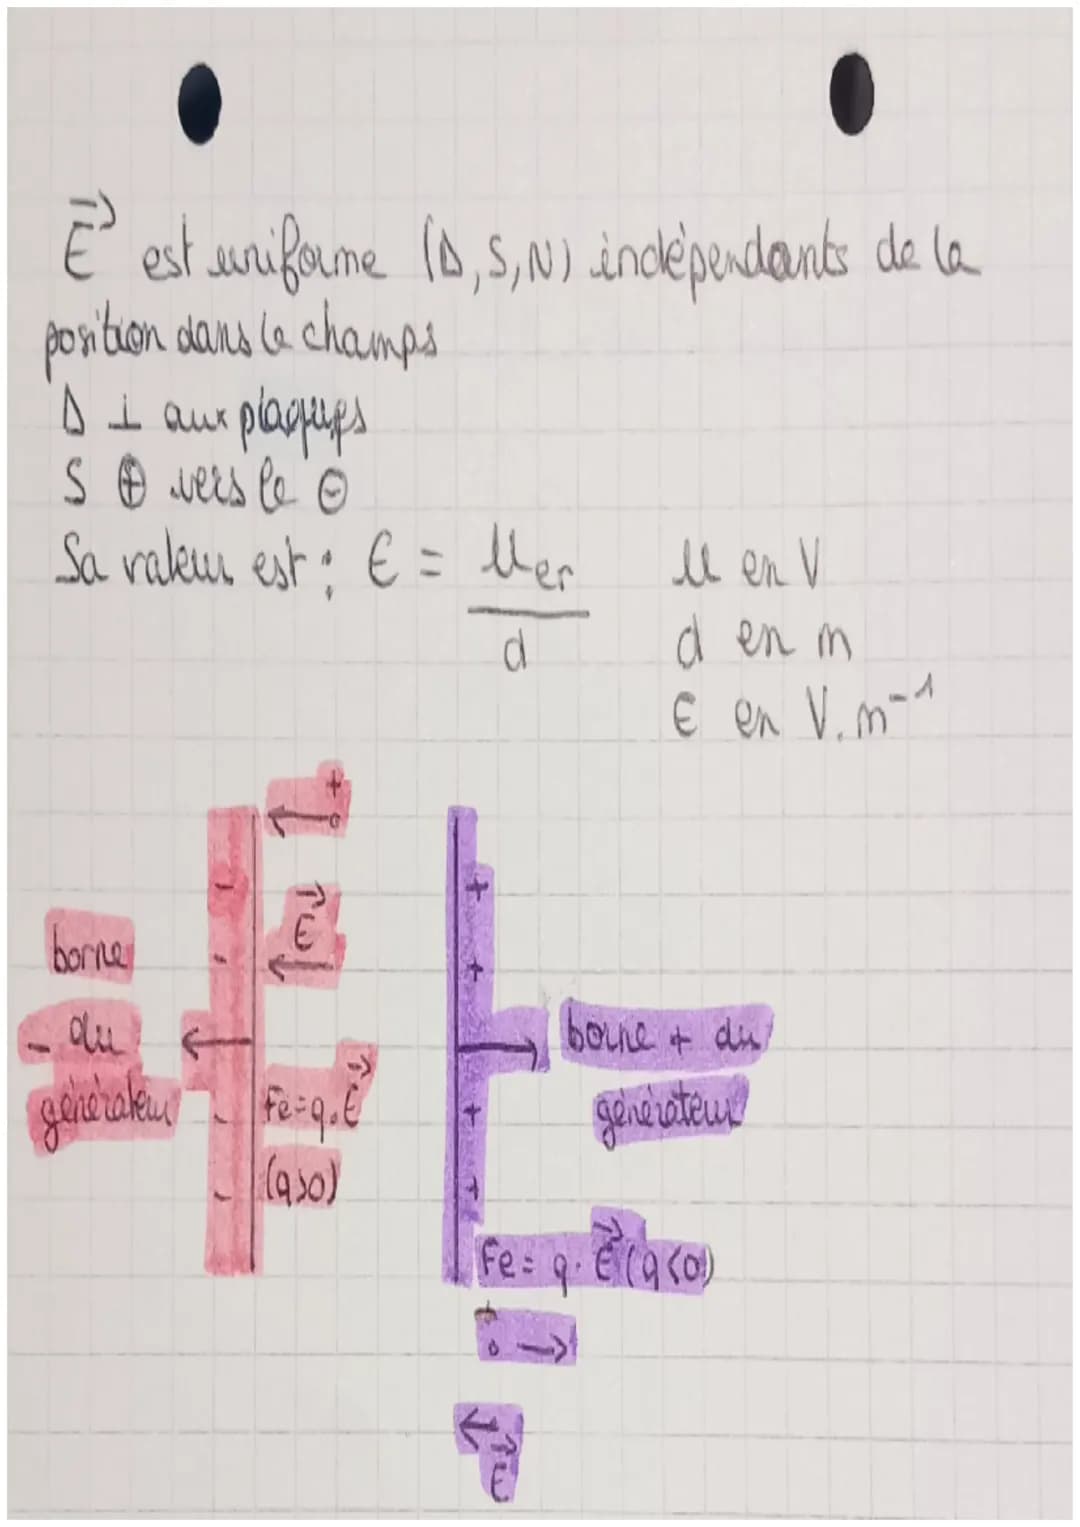 E⃗ est uniforme (D, S, N) indépendants de la
position dans le champs
D ⊥ aux plaques
S ⊕ vers le ⊖
Sa valeur est : E = U
d
U en V
d en m
E en V.m⁻¹
+
- - - -
E⃗
borne
- du
générateur
Fe = q.E⃗
(q>0)
+ + + +
borne + du
générateur
Fe = q. E⃗ (q<0)
E⃗